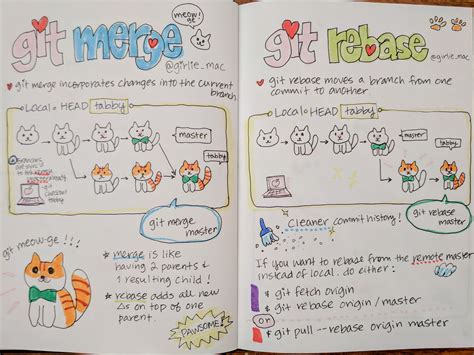 git merge
meow! ge
@girlie_mac
git merge incorporates changes into the current
branch
LOCAL: HEAD tabby
master
tabby
git merge
master
git meow-ge !!!
merge is like
having 2 parents &
1 resulting child!
rebase adds all new
Δs on top of one
parent.
PAWSOME!
git rebase
@girlie_mac
git rebase moves a branch from one
commit to another
LOCAL: HEAD tabby
master
tabby
git rebase
master
Cleaner commit history!
If you want to rebase from the remote master
instead of local. do either:
$ git fetch origin
$ git rebase origin/master
or
$ git pull --rebase origin master